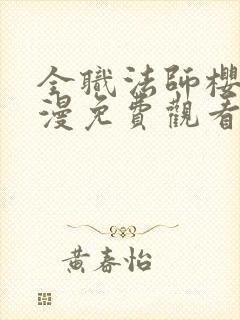 全職法師櫻
漫免費觀看
黃春怡